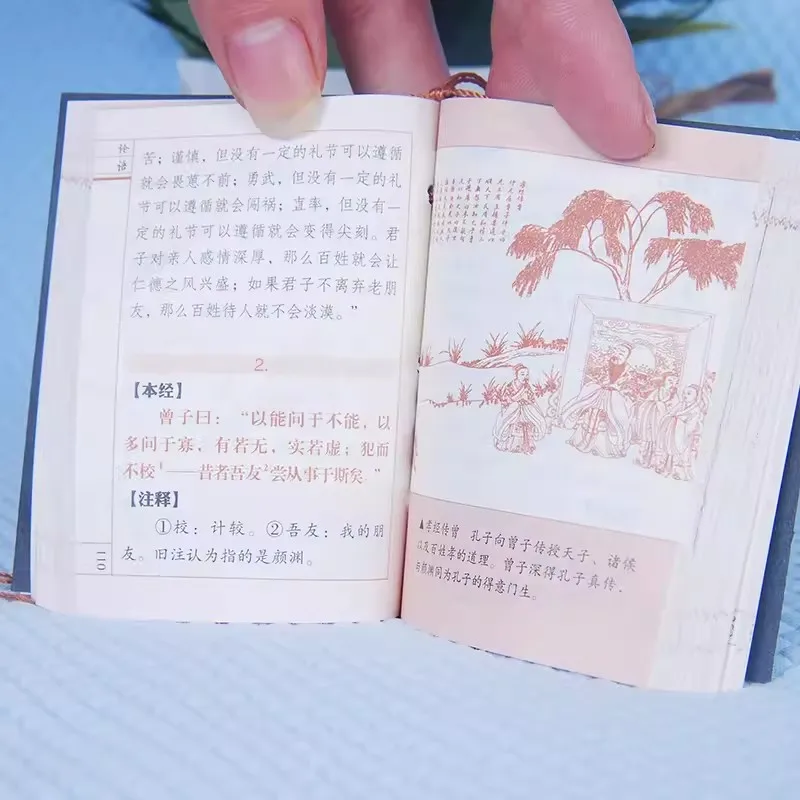 论
语
苦；谨慎，但没有一定的礼节可以遵循
就会畏葸不前；勇武，但没有一定的礼
节可以遵循就会闯祸；直率，但没有一
定的礼节可以遵循就会变得尖刻。君
子对亲人感情深厚、那么百姓就会让
仁德之风兴盛；如果君子不离弃老朋
友，那么百姓待人就不会淡漠。”
2.
【本经】
曾子曰：“以能问于不能，以
多问于寡，有若无，实若虚；犯而
不校¹——昔者吾友²尝从事于斯矣。”
【注释】
①校：计较。②吾友：我的朋
友。旧注认为指的是颜渊。
110
▲孝经传曾 孔子向曾子传授天子、诸侯
以及百姓孝的道理。曾子深得孔子真传，
与颜渊同为孔子的得意门生。